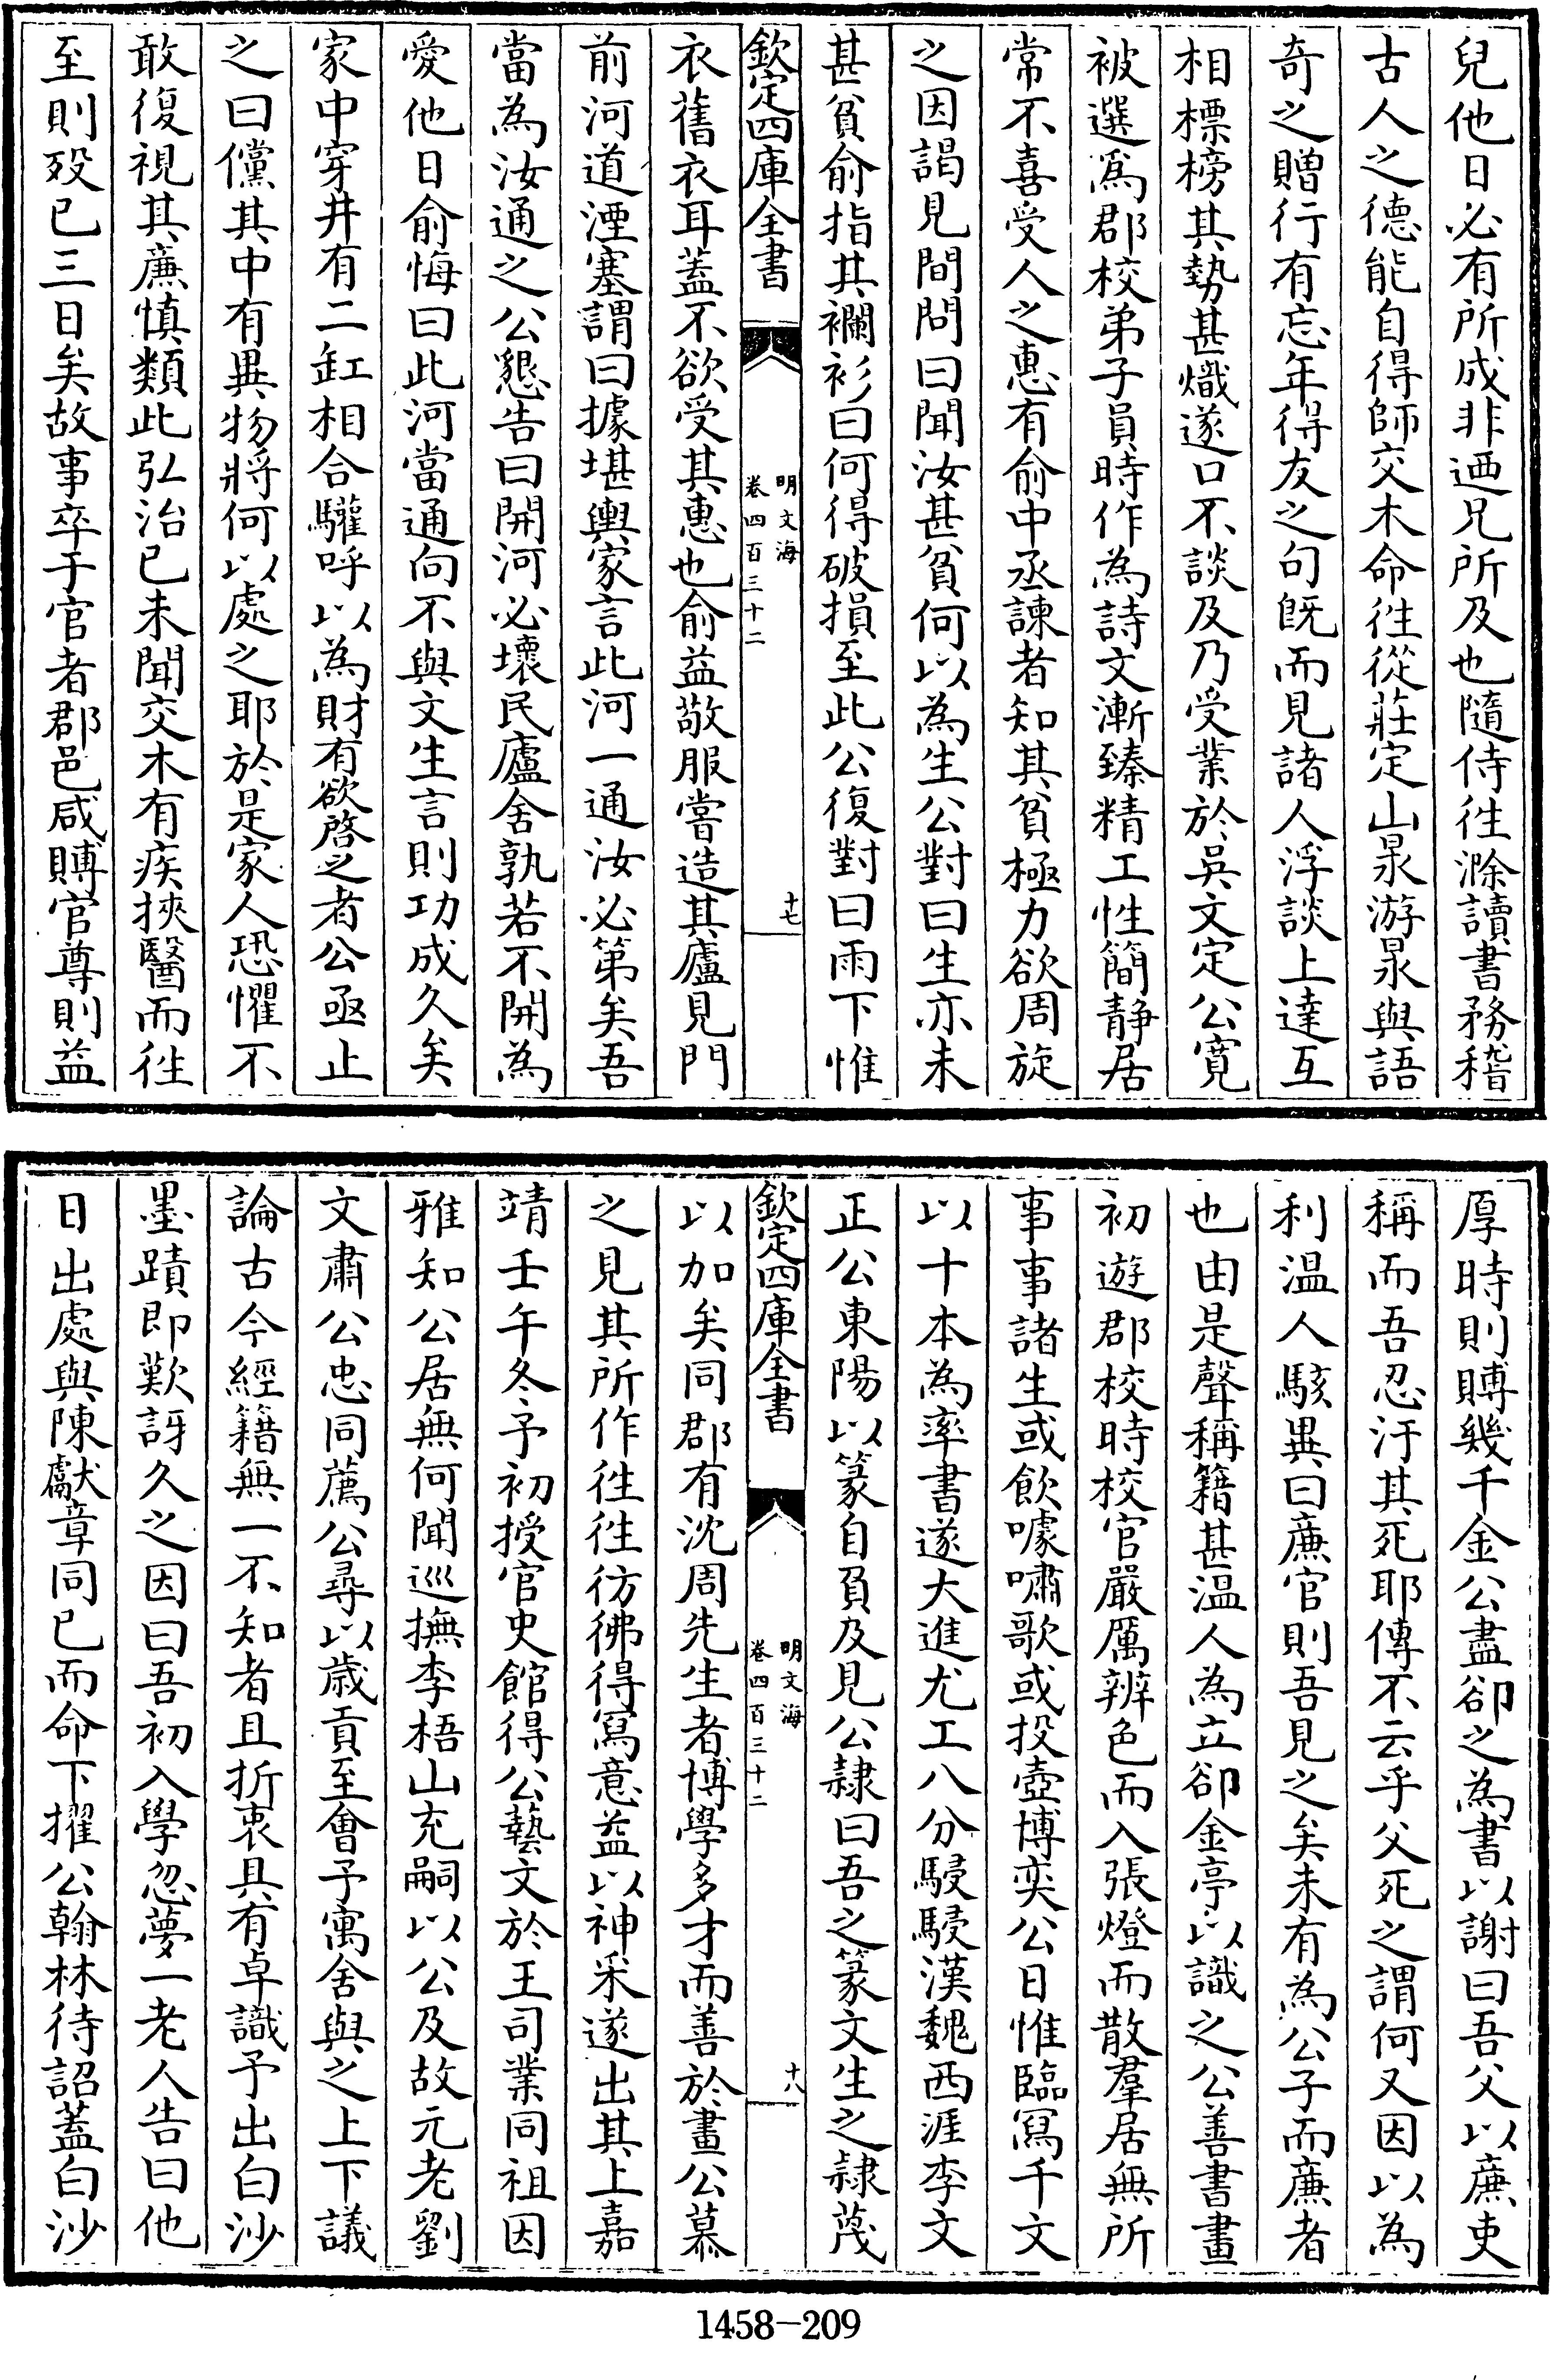 兒他日必有所成非迺兄所及也隨侍徃滁讀書務稽
古人之德能自得師交木命徃從莊定山㫤游㫤與語
奇之贈行有忘年得友之句旣而見諸人浮談上達互
相標榜其勢甚熾遂口不談及乃受業於吳文定公寛
被選爲郡校弟子員時作為詩文漸臻精工性簡靜居
常不喜受人之惠有俞中丞諫者知其貧極力欲周旋
之因謁見間問曰聞汝甚貧何以為生公對曰生亦未
甚貧俞指其襴衫曰何得破損至此公復對曰雨下惟
欽定四庫全書
明文海
卷四百三十二
十七
衣舊衣耳蓋不欲受其惠也俞益敬服嘗造其廬見門
前河道湮塞謂曰據堪輿家言此河一通汝必第矣吾
當為汝通之公懇告曰開河必壞民廬舍孰若不開為
愛他日俞悔曰此河當通向不與文生言則功成久矣
家中穿井有二缸相合驩呼以為財有欲啓之者公亟止
之曰儻其中有異物將何以處之耶於是家人恐懼不
敢復視其亷慎類此弘治已未聞交木有疾挾醫而徃
至則歿已三日矣故事卒于官者郡邑咸賻官尊則益
厚時則賻幾千金公盡卻之為書以謝曰吾父以亷吏
稱而吾忍汙其死耶傳不云乎父死之謂何又因以為
利温人駭異曰亷官則吾見之矣未有為公子而亷者
也由是聲稱籍甚温人為立卻金亭以識之公善書畫
初遊郡校時校官嚴厲辨色而入張燈而散羣居無所
事事諸生或飲噱嘯歌或投壺博奕公日惟臨寫千文
以十本為率書遂大進尤工八分駸駸漢魏西涯李文
正公東陽以篆自負及見公隷曰吾之篆文生之隷蔑
欽定四庫全書
明文海
卷四百三十二
十八
以加矣同郡有沈周先生者博學多才而善於畫公慕
之見其所作徃徃彷彿得寫意益以神采遂出其上嘉
靖壬午冬予初授官史館得公藝文於王司業同祖因
雅知公居無何聞巡撫李梧山充嗣以公及故元老劉
文肅公忠同薦公尋以歲貢至會予寓舍與之上下議
論古今經籍無一不知者且折衷具有卓識予出白沙
墨蹟即歎訝久之因曰吾初入學忽夢一老人告曰他
日出處與陳獻章同已而命下擢公翰林待詔蓋白沙
1458-209